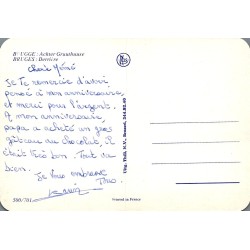 BRUGGE: Achter Gruuthuuse
BRUGES: Derrière
Chère Mémé
Je Te remercie d'avoir
pensé à mon anniversaire,
et merci pour l'argent.
A mon anniversaire,
papa a acheté un gros
gâteau au chocolat, il
était très bon. Tout va
bien.
Je vous embrasse
500/701
Uitg. Thill, N.V., Brussel,
Printed in France